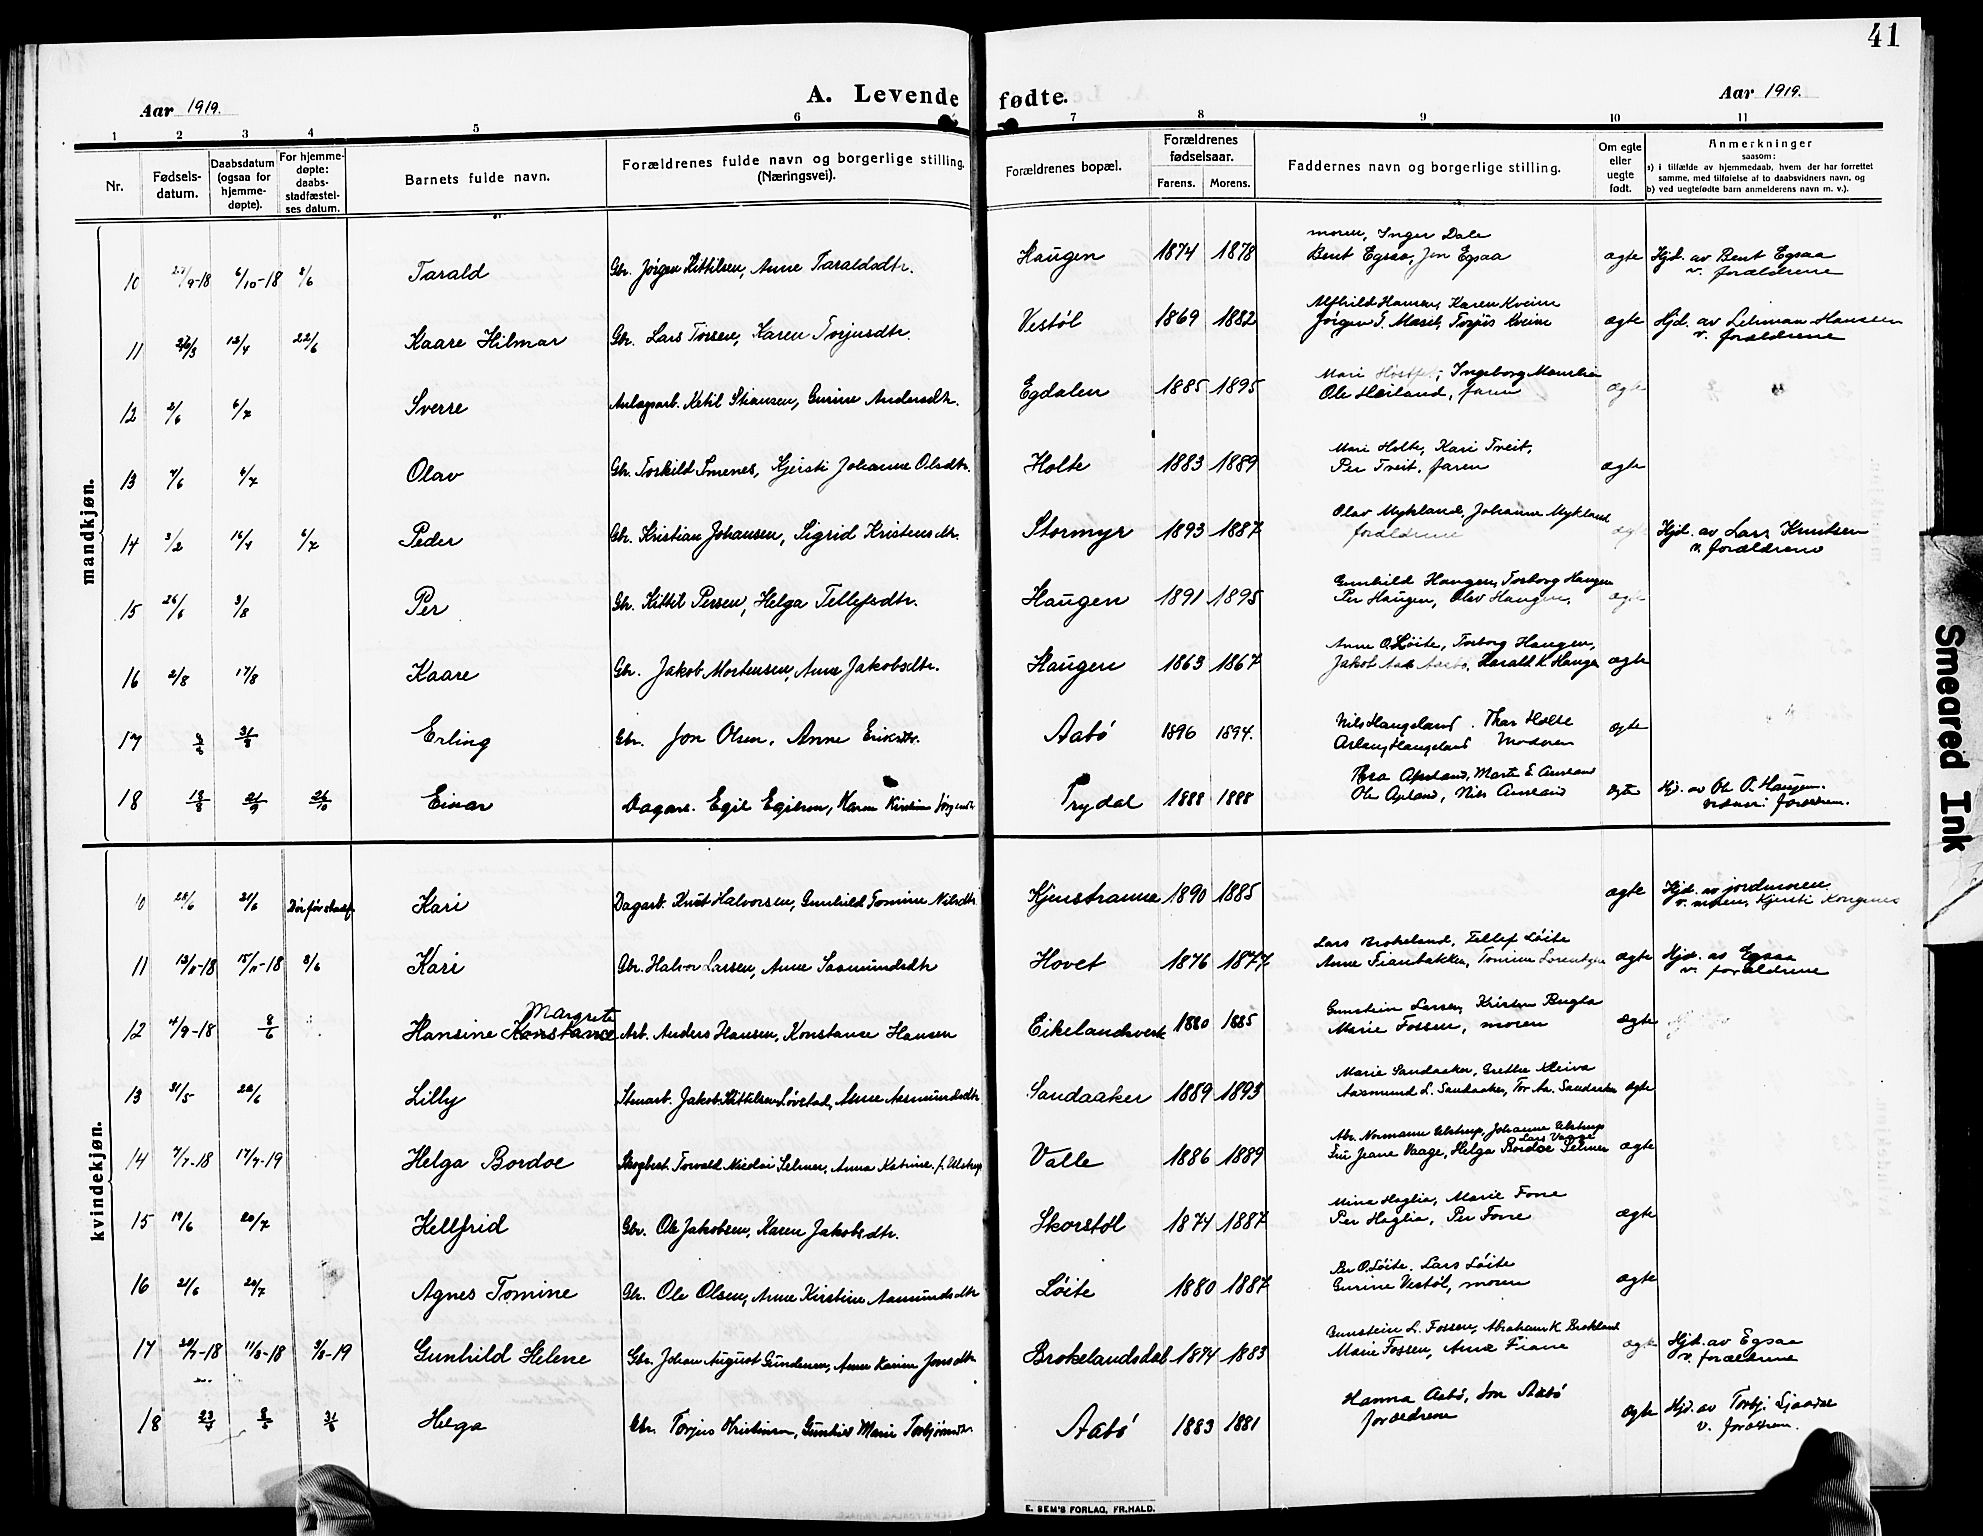 41
A. Levende fødte.
Aar 1919.
Aar 1919.
1 2 3 4 5 6 7 8 9 10 11
Nr.
Fødsels-
datum.
Daabsdatum
(ogsaa for
hjemme-
døpte).
For hjemme-
døpte:
daabs-
stadfæstel-
ses datum.
Barnets fulde navn.
Forældrenes fulde navn og borgerlige stilling.
(Næringsvei).
Forældrenes bopæl.
Forældrenes
fødselsaar.
Farens. Morens.
Faddernes navn og borgerlige stilling.
Om egte
eller
uegte
født.
Anmerkninger
saasom:
a) i tilfælde av hjemmedaab, hvem der har forrettet
samme, med tilføielse af to daabsvidners navn, og
b) ved uegtefødte barn anmelderens navn m. v.).
mandkjøn.
moren, Inger Dale
10 6/10-18 8/6 Tarald Gbr. Jørgen Kittilsen, Anne Taraldsdtr. Haugen 1874 1878 Bent Egsaa, Jon Egsaa ægte Hjd. av Bent Egsaa
v. forældrene
Alfhild Hansen, Karen Kveim
11 13/4 22/6 Kaare Hilmar Gbr. Lars Torsen, Karen Torjusdtr. Vestøl 1869 1882 Jørgen T. Torjus Kveim ægte Hjd. av Lehman Hansen
v. forældrene
Mari Ingeborg
12 2/6 6/7 Sverre Anlægsarb. Ketil Stiansen, Gurine Andersdtr. Egdalen 1885 1895 Ole Høiland, faren ægte
Mari Holte, Kari Tveit,
13 7/6 6/7 Olav Gbr. Torkild Smenes, Kjersti Johanne Olsdtr. Holte 1883 1889 Per Tveit, faren ægte
Olav Mykland, Johanne Mykland
14 3/2 16/4 6/7 Peder Gbr. Kristian Johansen, Sigrid Kristensdtr. Stormyr 1893 1887 forældrene ægte Hjd. av Lars Knutsen
v. forældrene
Gunhild Haugen, Torborg Haugen
15 26/6 3/8 Per Gbr. Kittil Persen, Helga Tellefsdtr. Haugen 1891 1895 Per Haugen, Olav Haugen, ægte
Anne O. Løite, Torborg Haugen,
16 2/8 17/8 Kaare Gbr. Jakob Mortensen, Anne Jakobsdtr. Haugen 1863 1867 Jakob Harald K. Haugen ægte
Nils Haugeland Thar Holte
17 31/8 Erling Gbr. Jon Olsen, Anne Eriksdtr. Aabø 1896 1894. Aslaug Haugeland Moderen ægte
Apeland, Marte E.
18 18/8 21/9 26/10 Einar Dagarb. Egil Egilsen, Karen Kirstine Jørgensdtr. Trydal 1888 1888 Ole Apland, Nils ægte Hjd. av Ole O. Haugen.
forældrene.
kvindekjøn.
10 21/6 Dør før stadf. Kari Dagarb. Knut Halvorsen, Gunhild Tomine Nilsdtr. Kjenstranne 1890 1885 ægte Hjd. av jordmoren
v. moren, Kjersti Kongenes
Lars Brokeland, Tellef Løite
11 13/11-18 15/11-18 8/6 Kari Gbr. Halvor Larsen, Anne Aasmundsdtr Hovet 1876 1877 Anne Fianbakken, Tomine Lorentzen ægte Hjd. av Egsaa
v. forældrene
Margrete Gunstein Larsen, Kristen Bugla
12 4/9-18 8/6 Hansine Konstance Arb. Anders Hansen, Konstanse Hansen Eikelandsverk 1880 1885 Marie Fossen, moren ægte
Marie Sandaaker, Grethe Kleiva
13 31/5 22/6 Lilly Stenarb. Jakob Kittilsen Løvstad, Anne Aasmundsdtr. Sandaaker 1889 1893 Aasmund L. Sandaaker, Tor Aa. Sandaaker ægte
Abr. Normann Ulstrup, Johanne Ulstrup
Lars Vaage
14 7/7-18 17/7-19 Helga Bordoe Skogbest. Torvald Nicolai Selmer, Anna Katrine f. Ulstrup Valle 1886 1889 Fru Jeane Vaage, Helga Bordoe Selmer ægte
Mina Haglia, Marie Fone
15 19/6 20/7 Hellfrid Gbr. Ole Jakobsen, Karen Jakobsdtr. Skorstøl 1874 1887 Per Haglia, Per Fone ægte
Per O. Løite, Lars Løite
16 21/6 20/7 Agnes Tomine Gbr. Ole Olsen, Anne Kirstine Aasmundsdtr Løite 1880 1887 Gurine Vestøl, moren ægte
Gunstein L. Fossen, Abraham K. Brokland
17 20/7-18 11/8-18 3/8-19 Gunhild Helene Gbr. Johan August Gundersen, Anne Karine Jonsdtr. Brokelandsdal 1874 1883 Marie Fossen, Anne Fiane ægte Hjd. av Egsaa
v. forældrene
Hanna Aabø, Jon Aabø
18 8/5 31/8 Helga Gbr. Torjus Kristensen, Gunhild Marie Torbjørnsdtr. Aabø 1883 1881 forældrene ægte Hjd. av Torbj.
v. forældren.
E. SEM'S FORLAG, FR.HALD.
Smeared Ink